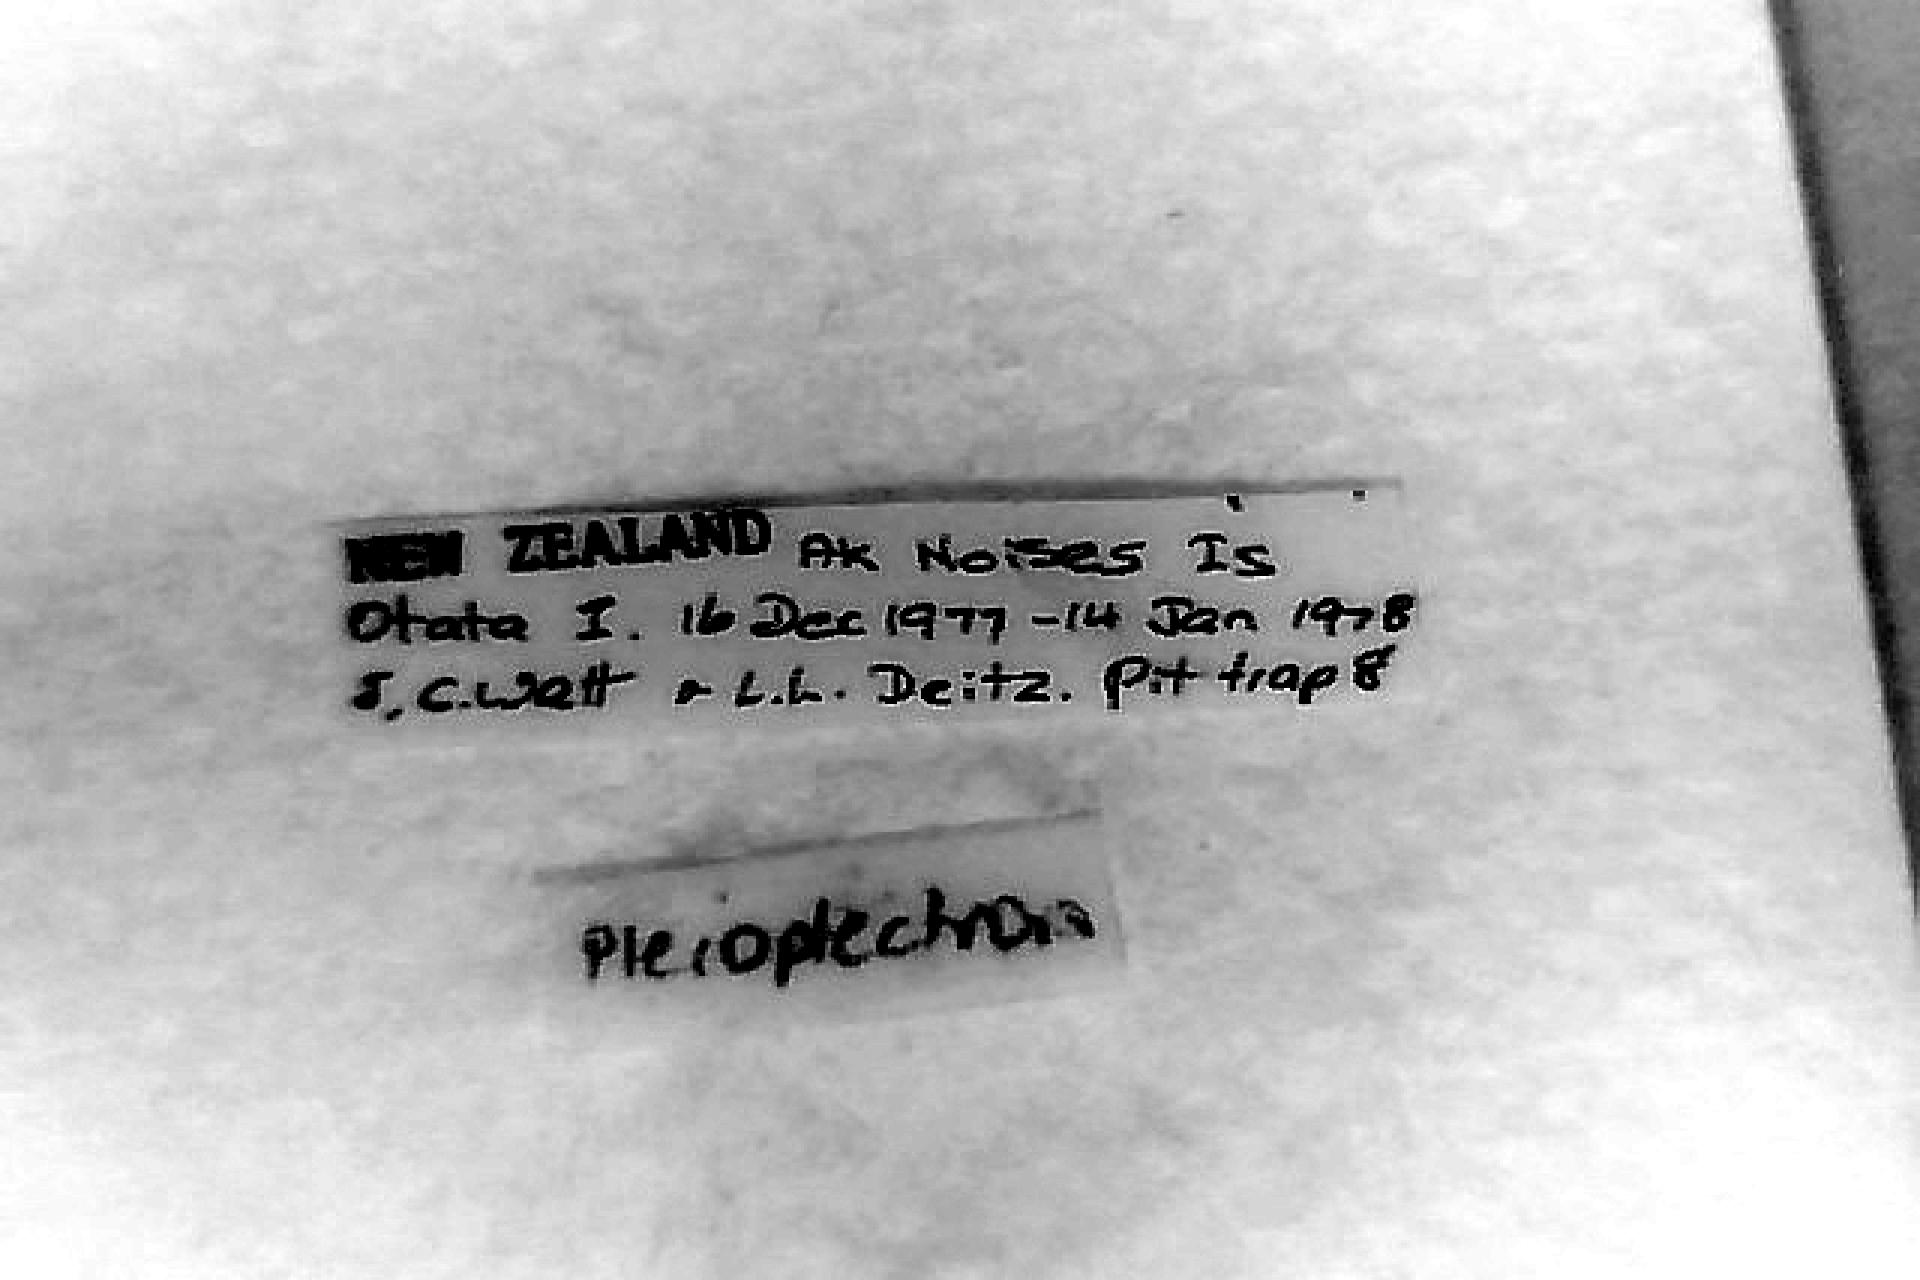 NEW ZEALAND AK Noises Is
Otata I. 16 Dec 1977 -14 Jan 1978
J.C.Watt & L.L. Deitz. Pit trap 8
Pleioplectron